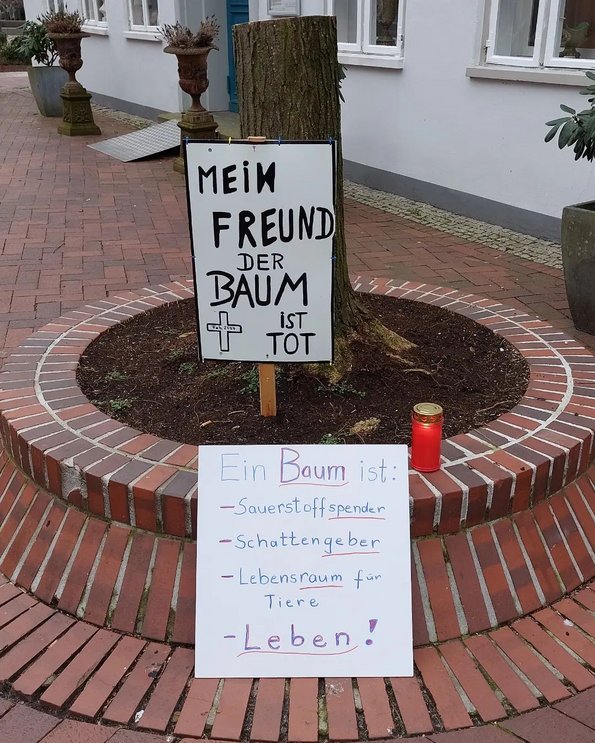 MEIN
FREUND
DER
BAUM
IST
TOT
Ein Baum ist:
- Sauerstoffspender
- Schattengeber
- Lebensraum für
Tiere
- Leben!